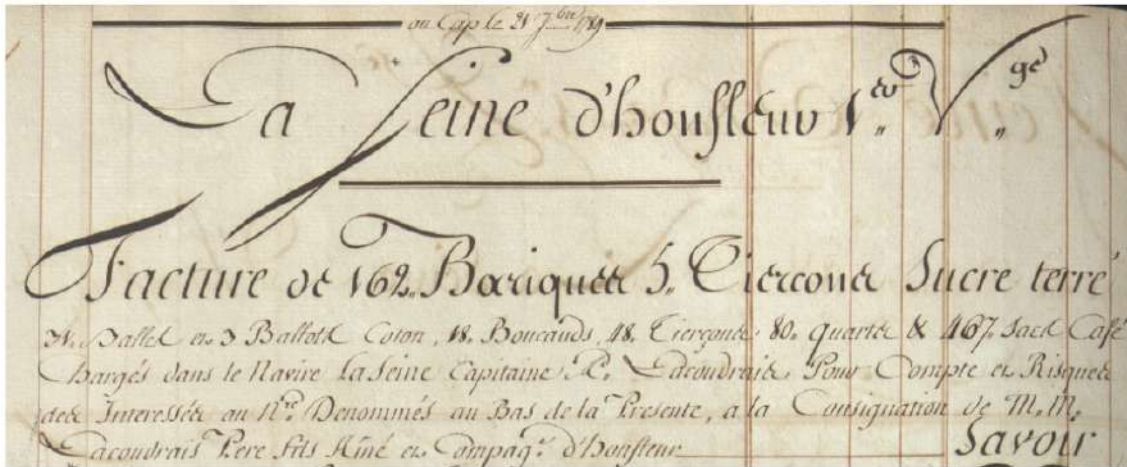 au Cap le 21 7bre 1789
La Seine d'honfleur 1.er V.ge
Facture de 162. Bariques 5. Tierçons Sucre terré
Balles et 3 Ballots Coton, 18. Boucauds, 48. Tierçons 80. quarts & 467. Sacs Café
Chargés dans le Navire la Seine Capitaine Lacoudrais, Pour Compte et Risques
des Interessés au N.re Denommés au Bas de la Presente, a la Consignation de M.M.
Lacoudrais Pere fils Ainé et Compag.e d'honfleur Savoir